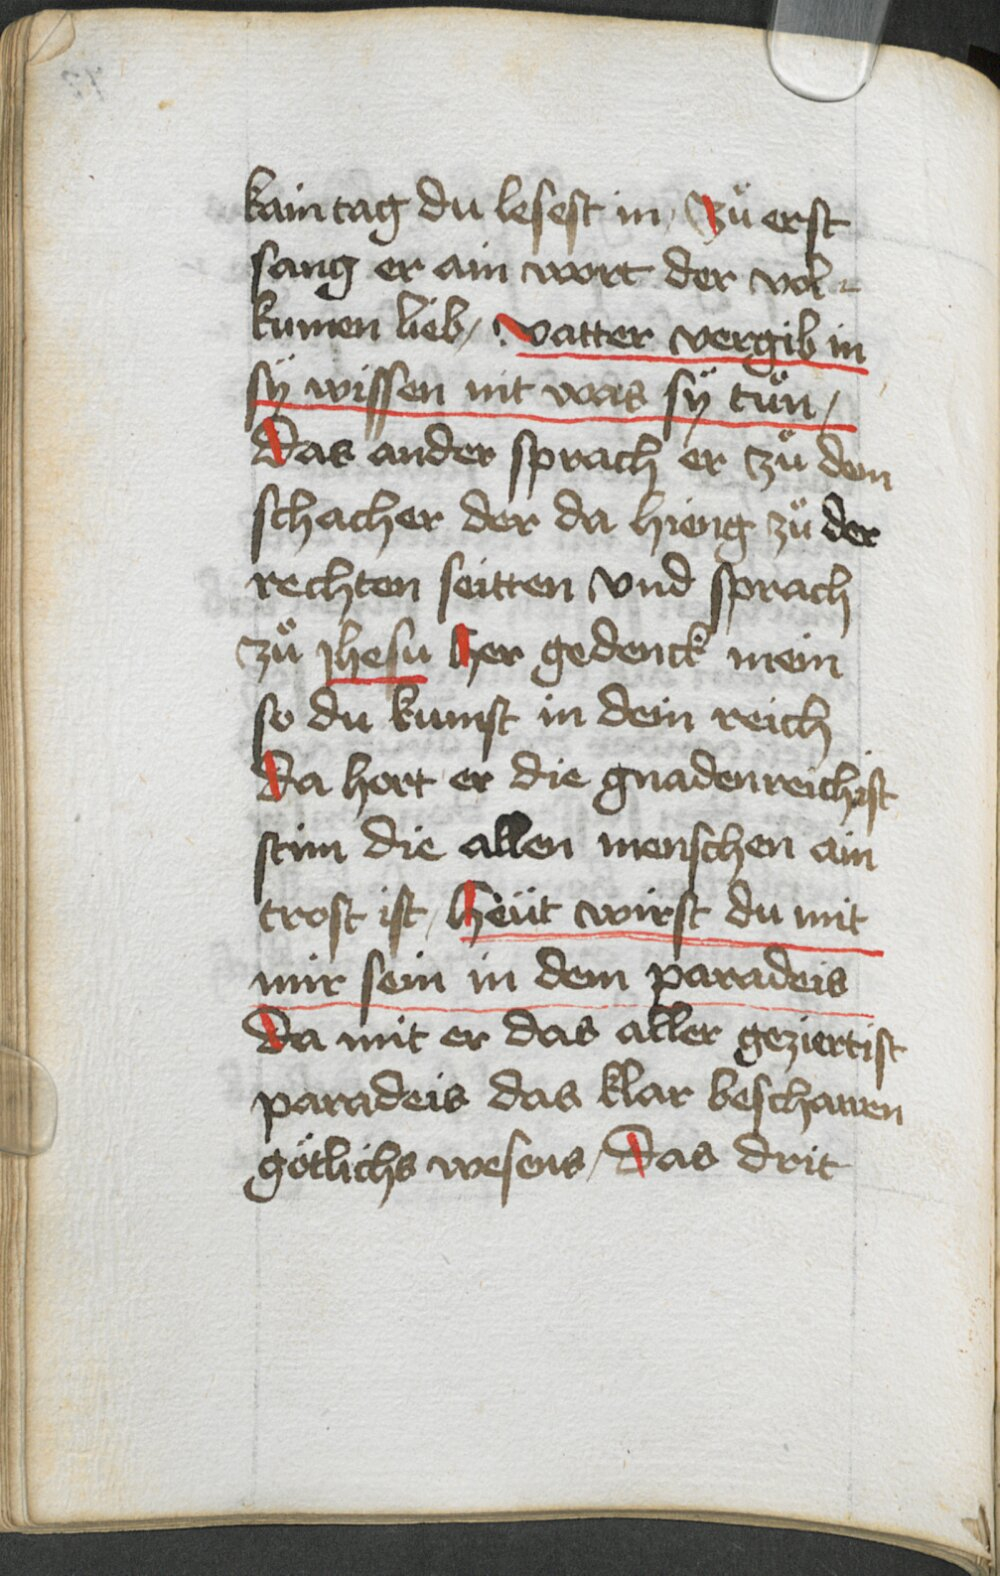 kain tag du lesest in / Zů erst
sang er ain wort der vol-
kumen lieb / vatter vergib in
sÿ wissen nit was sÿ tůn /
Das ander sprach er zů dem
schacher der da hieng zů der
rechten seitten vnd sprach
zů jhesu her gedenck mein
so du kumst in dein reich
Da hort er die gnadenreichist
stim die allen menschen ain
trost ist / heüt wirst du mit
mir sein in dem paradeis
Da mit er das aller geziertist
paradeis das klar beschawen
götlichs wesens / Das drit